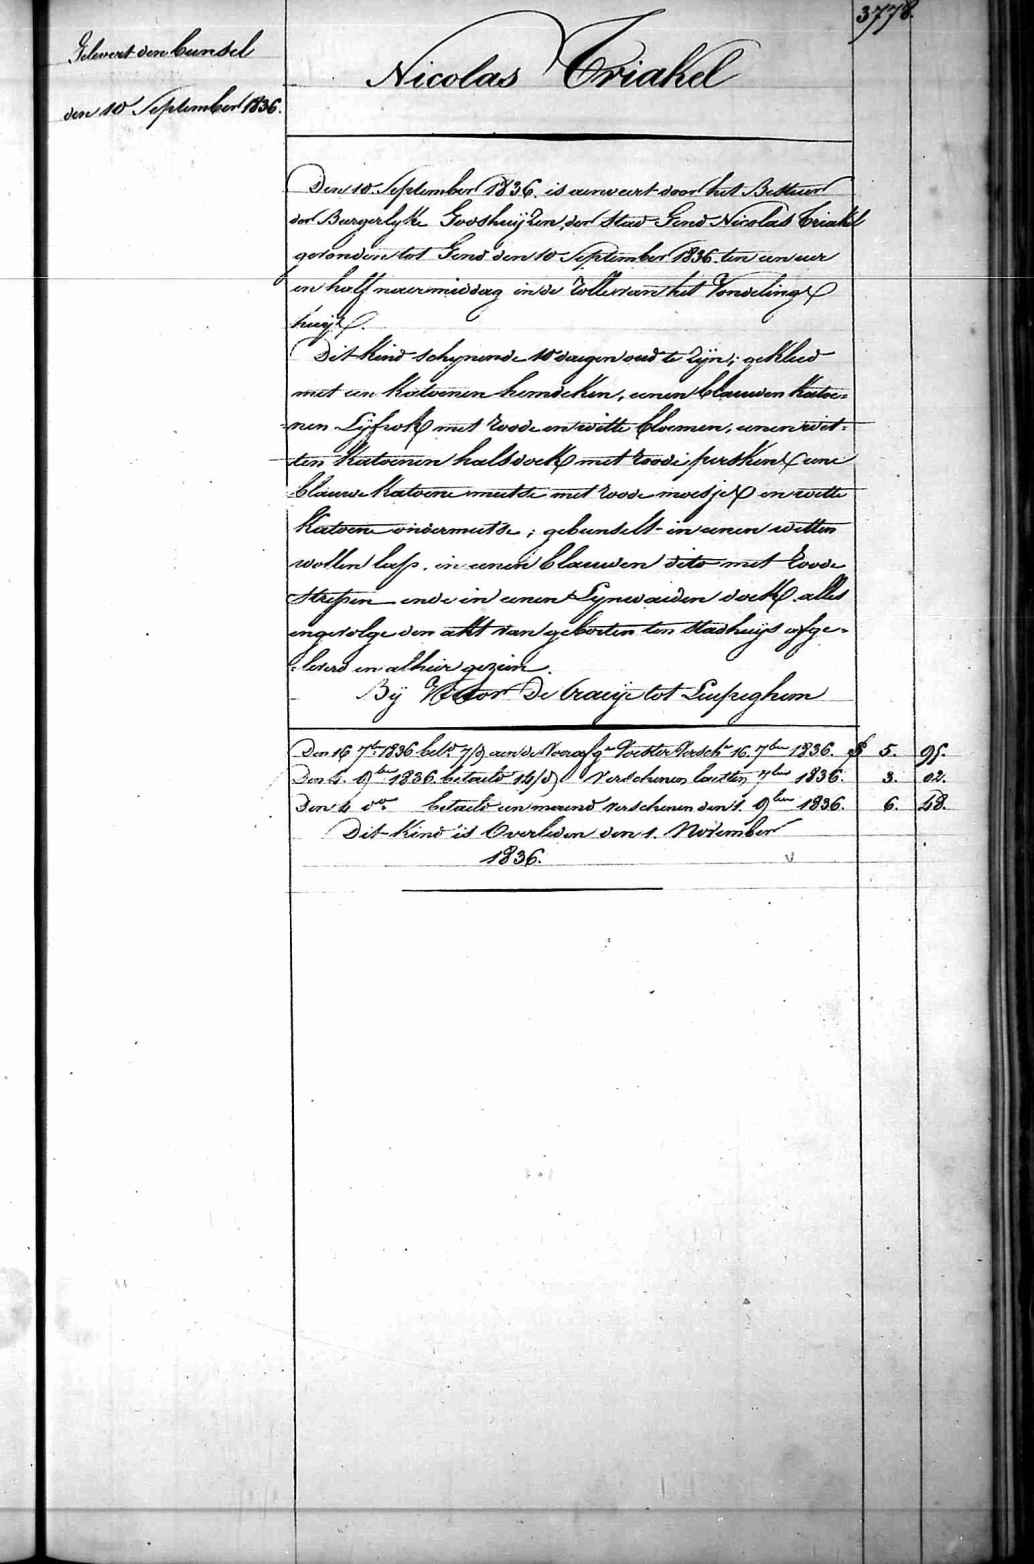 3778.
Gelevert den bunsel
den 10 September 1836.
Nicolas Triakel
Den 10 September 1836. is aenveert door het Bestuer
der Burgerlyke Godshuijzen der Stad Gend Nicolas Triakel
gevonden tot Gend den 10 September 1836. ten een uer
en half naermiddag in de Rolle van het Vondelings
huijs.
Dit kind schynende 10 daegen oud te zijn; gekleed
met een katoenen hemdeken, eenen blauwen katoe-
-nen Lijfrok met roode en witte bloemen, eenen wit-
ten katoenen halsdoek met roode perskens eene
blauwe katoene mutse met roode moesjes en witte
katoene ondermutse; gebunselt in eenen witten
wollen lap, in eenen blauwen dito met roode
strepen ende in eenen Lynwaeden doek alles
engevolge den akt van geboorten ten stadhuijs afge-
-leverd en alhier gezien.
Bij De Craeije tot Leupeghem
Den 16 7ber 1836 bet.d 7/9 aen de Voorsch. 16. 7ber 1836. 5. 95.
Den 4. 9ber 1836. betaeld 14/9 Verschenen laetsten 7ber 1836. 3. 02.
Den 4 do betaeld een maend verschenen den 1. 9ber 1836. 6. 48.
Dit kind is Overleden den 1. November
1836.